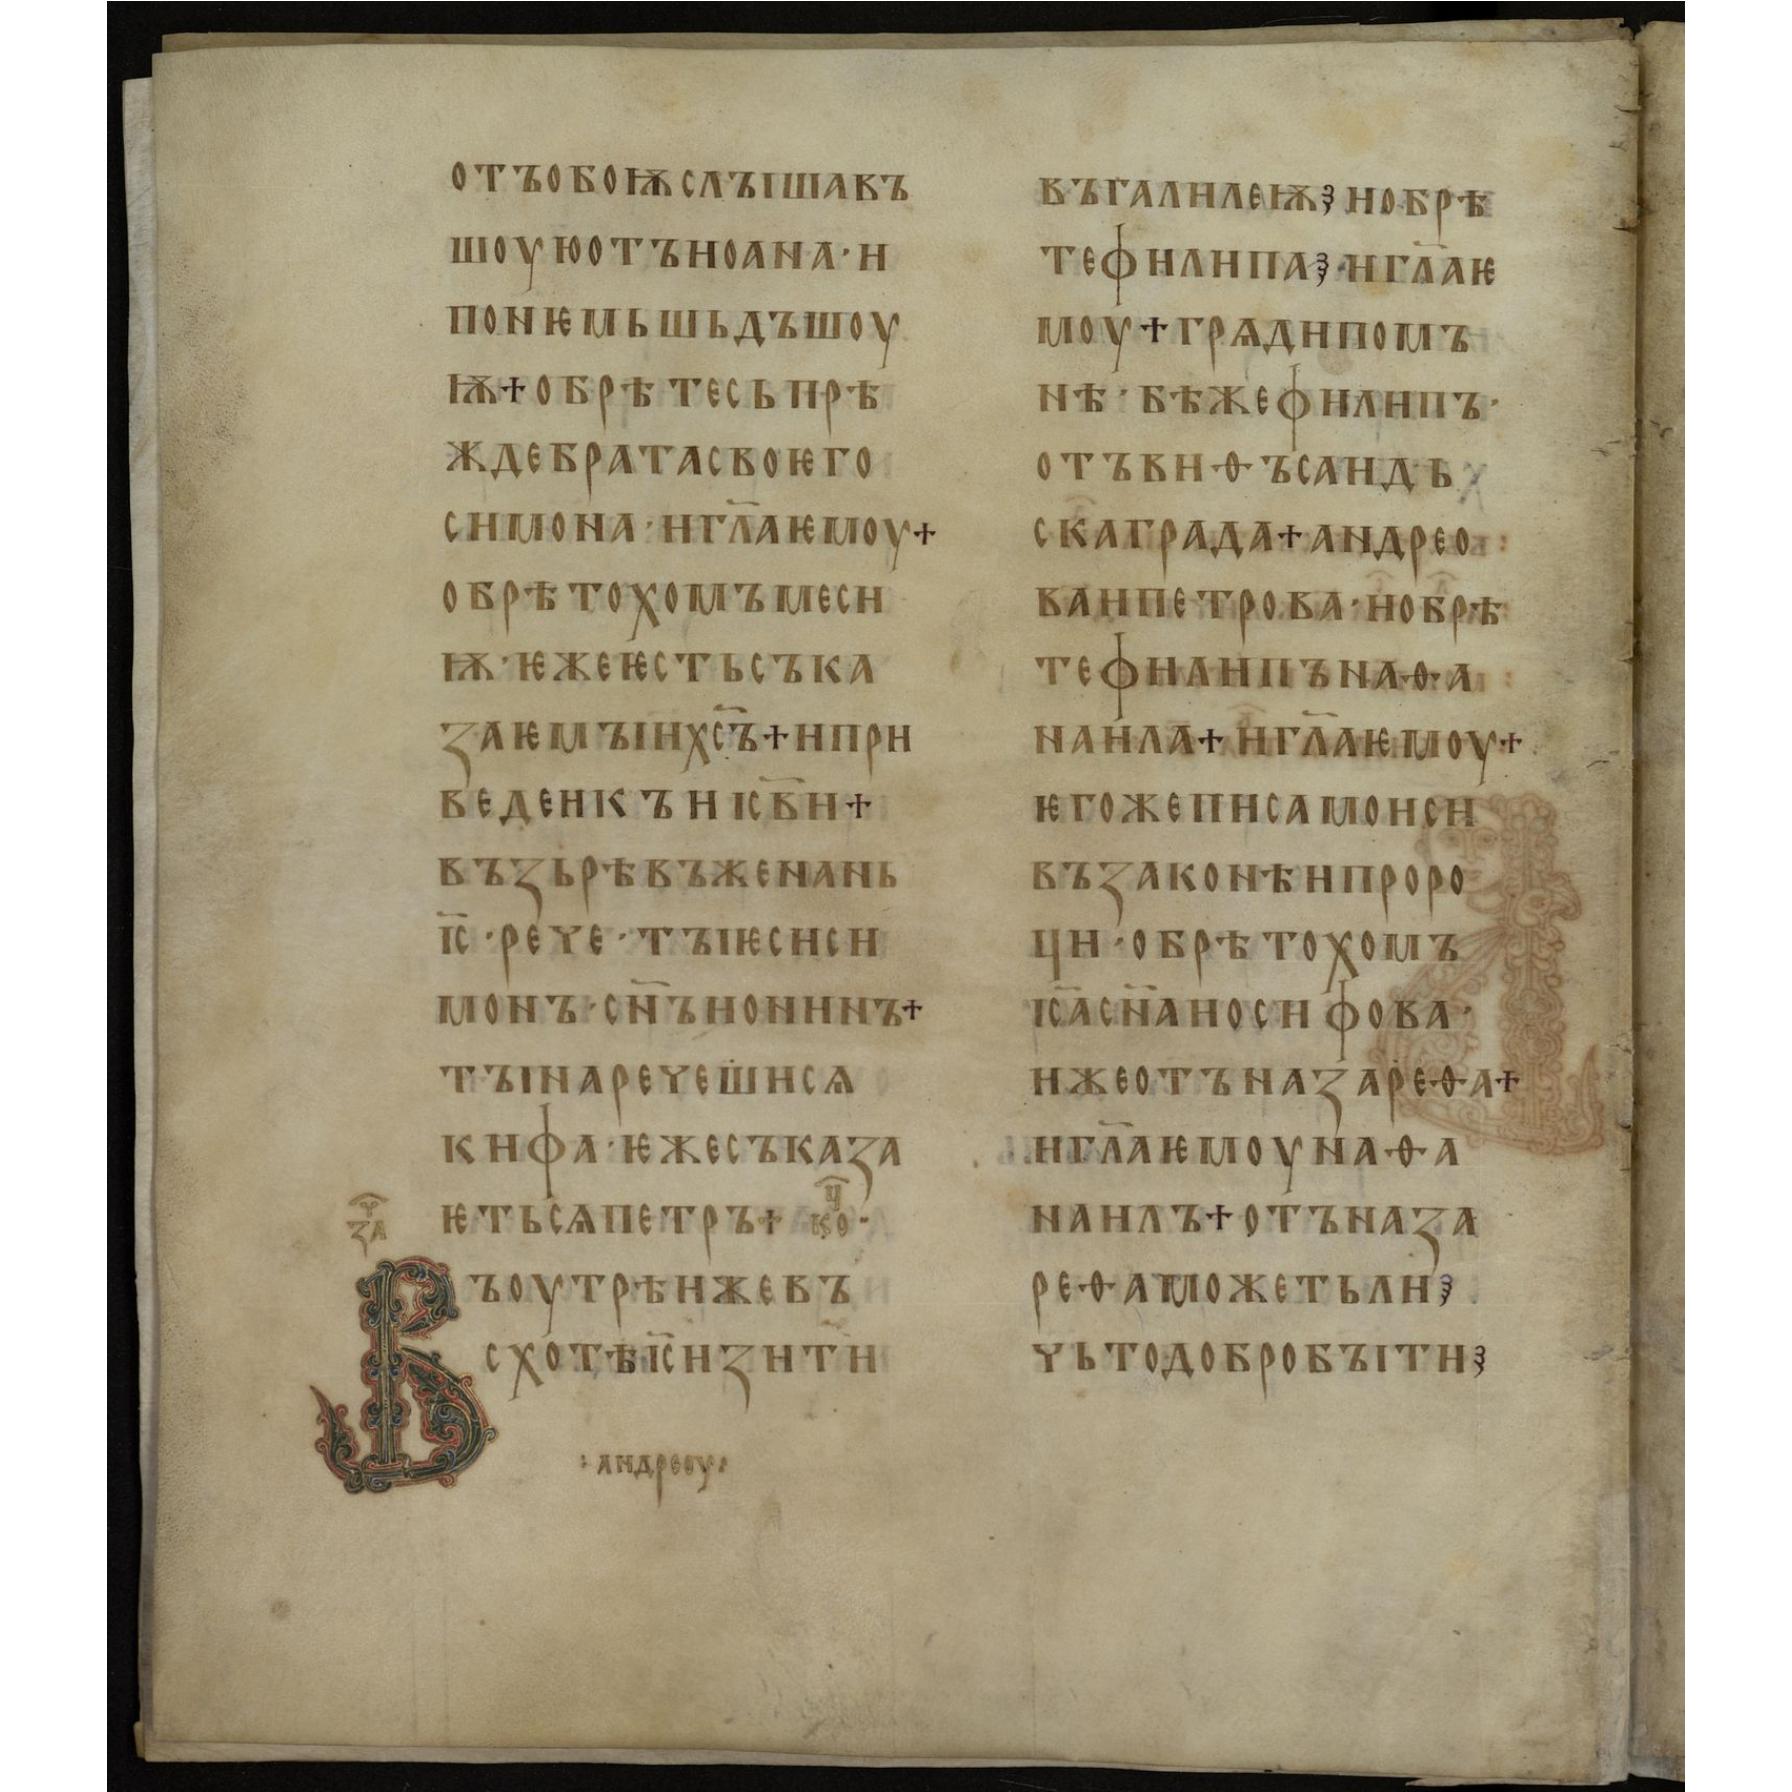 отъобоѭслꙑшавъ
шоуюотъиоана·и
понѥмьшьдъшоу
ѭ+обрѣтесьпрѣ
ждебратасвоѥго
симона·игл҃аѥмоу+
обрѣтохомъмеси
ѭ·ѥжеѥстьсъка
заѥмꙑихс҃ъ+ипри
веденкъиісв҃и+
възьрѣвъженань
іс҃·рече·тꙑѥсиси
монъ·сн҃ъионинъ+
тꙑнаречешисѧ
кифа·ѥжесъказа
ѥтьсѧпетръ+ ко҃ц·
за҃ч
Въоутрѣижевъ
схотѣіс҃изити
:андреоу:
въгалилеѭҙиобрѣ
тефилипаҙ·игл҃аѥ
моу+грѧдипомъ
нѣ·бѣжефилипъ·
отъвиѳъсаидъ
скаграда+андрео
ваипетрова·иобрѣ
тефилипънаѳа
наила+игл҃аѥмоу+
ѥгожеписамоиси
възаконѣипроро
ци·обрѣтохомъ
іс҃асн҃аиосифова·
ижеотъназареѳа+
игл҃аѥмоунаѳа
наилъ+отъназа
реѳаможетьлиҙ
чьтодобробꙑтиҙ